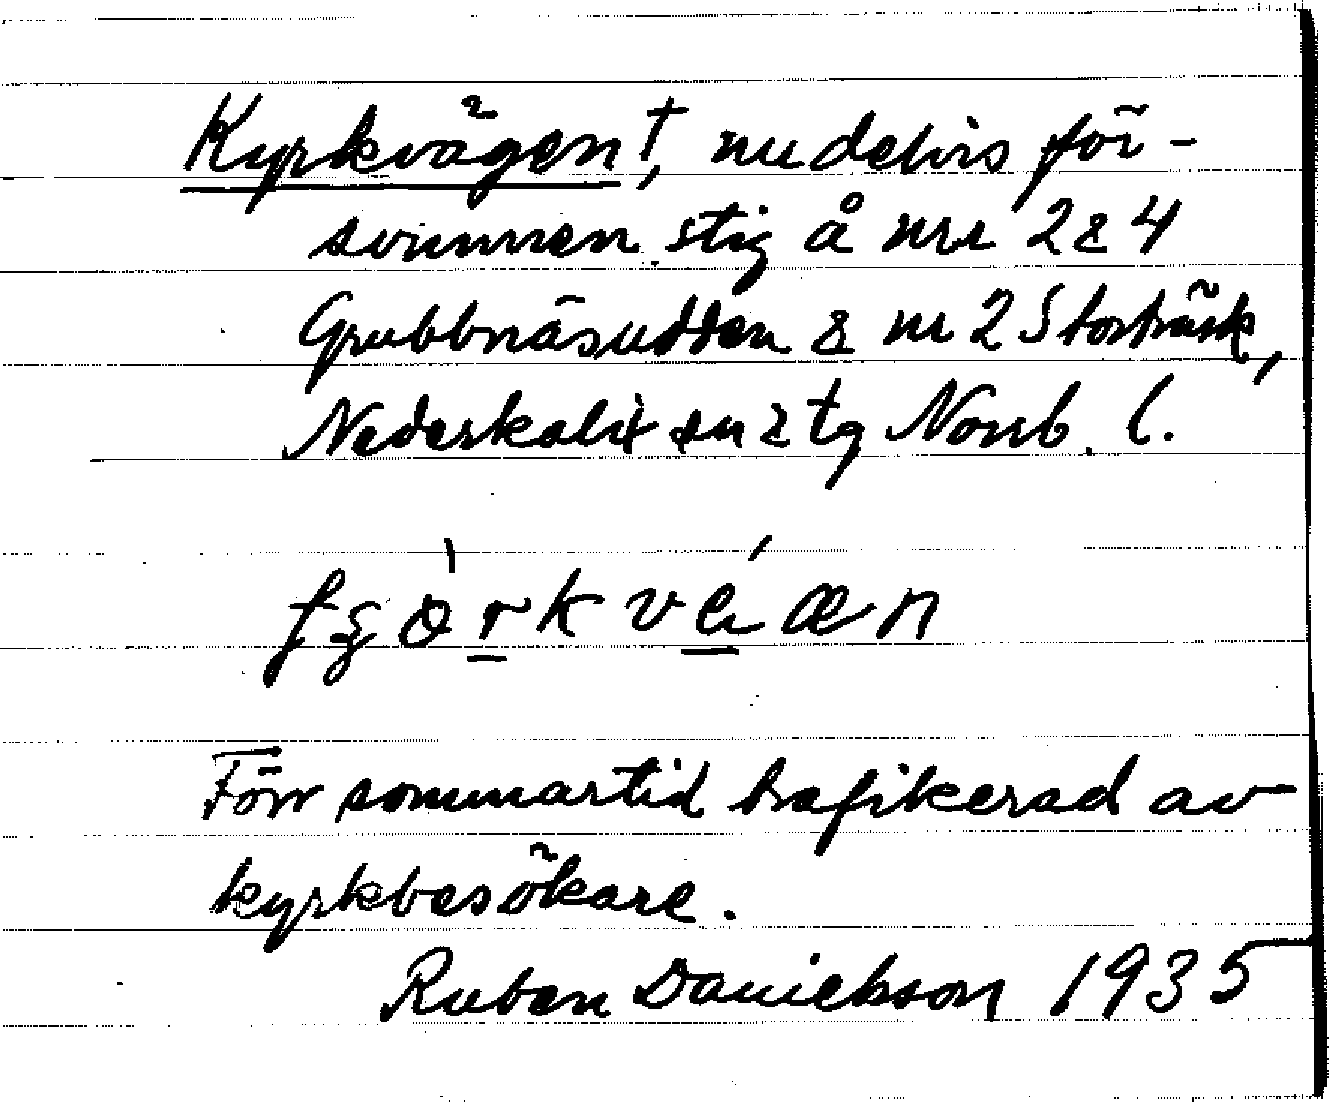 Kyrkvägen†, nu delvis för-
svunnen stig å nrr 2 & 4
Grubbnäsudden & nr 2 Storträsk,
Nederkalix sn & tg Norrb. l.
Förr sommartid trafikerad av
kyrkbesökare.
Ruben Danielsson 1935